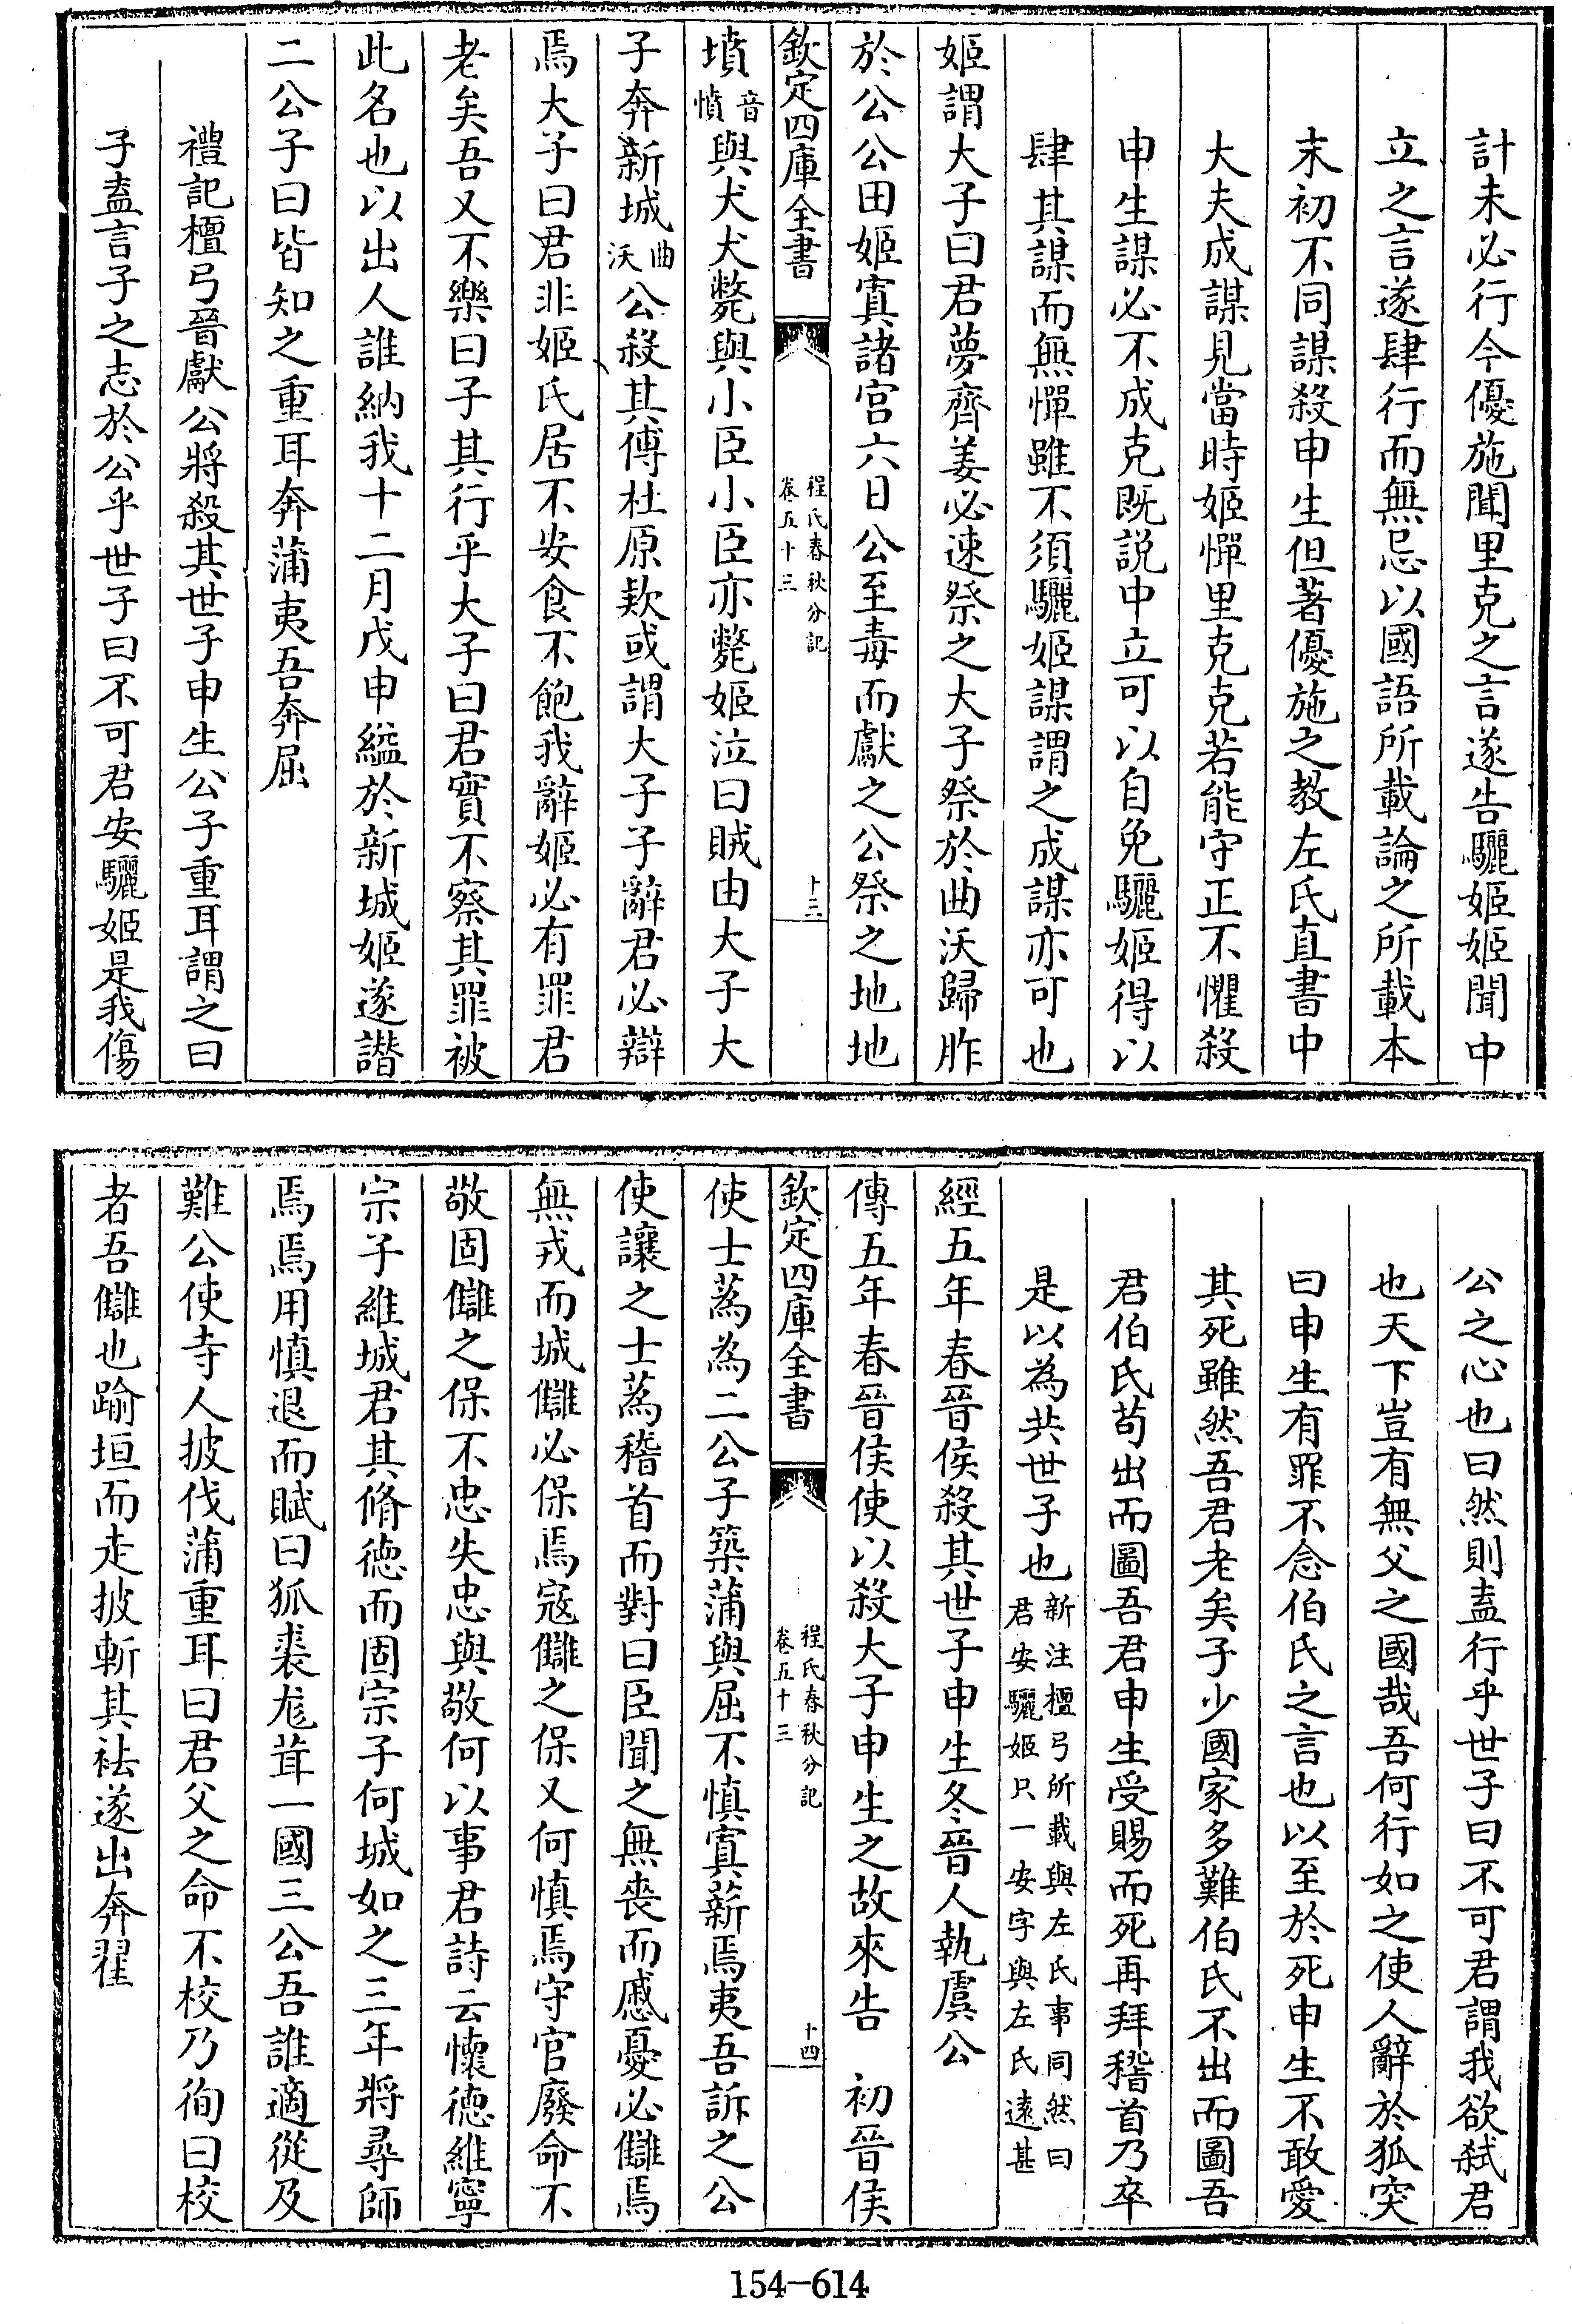 計未必行今優施聞里克之言遂告驪姬姬聞中
立之言遂肆行而無忌以國語所載論之所載本
末初不同謀殺申生但著優施之教左氏直書中
大夫成謀見當時姬憚里克克若能守正不懼殺
申生謀必不成克既説中立可以自免驪姬得以
肆其謀而無憚雖不須驪姬謀謂之成謀亦可也
姬謂大子曰君夢齊姜必速祭之大子祭於曲沃歸胙
於公公田姬寘諸宫六日公至毒而獻之公祭之地地
欽定四庫全書
程氏春秋分記
卷五十三
十三
墳音憤與犬犬斃與小臣小臣亦斃姬泣曰賊由大子大
子奔新城曲沃公殺其傅杜原款或謂大子子辭君必辯
焉大子曰君非姬氏居不安食不飽我辭姬必有罪君
老矣吾又不樂曰子其行乎大子曰君實不察其罪被
此名也以出人誰納我十二月戊申縊於新城姬遂譖
二公子曰皆知之重耳奔蒲夷吾奔屈
禮記檀弓晉獻公將殺其世子申生公子重耳謂之曰
子盍言子之志於公乎世子曰不可君安驪姬是我傷
公之心也曰然則盍行乎世子曰不可君謂我欲弑君
也天下豈有無父之國哉吾何行如之使人辭於狐突
曰申生有罪不念伯氏之言也以至於死申生不敢愛
其死雖然吾君老矣子少國家多難伯氏不出而圖吾
君伯氏茍出而圖吾君申生受賜而死再拜稽首乃卒
是以為共世子也新注檀弓所載與左氏事同然曰君安驪姬只一安字與左氏逺甚
經五年春晉侯殺其世子申生冬晉人執虞公
傳五年春晉侯使以殺大子申生之故來告　初晉侯
欽定四庫全書
程氏春秋分記
卷五十三
十四
使士蒍為二公子築蒲與屈不慎寘薪焉夷吾訴之公
使讓之士蒍稽首而對曰臣聞之無喪而慼憂必讎焉
無戎而城讎必保焉寇讎之保又何慎焉守官廢命不
敬固讎之保不忠失忠與敬何以事君詩云懷徳維寧
宗子維城君其脩徳而固宗子何城如之三年將尋師
焉焉用慎退而賦曰狐裘尨茸一國三公吾誰適從及
難公使寺人披伐蒲重耳曰君父之命不校乃徇曰校
者吾讎也踰垣而走披斬其袪遂出奔翟
154—614